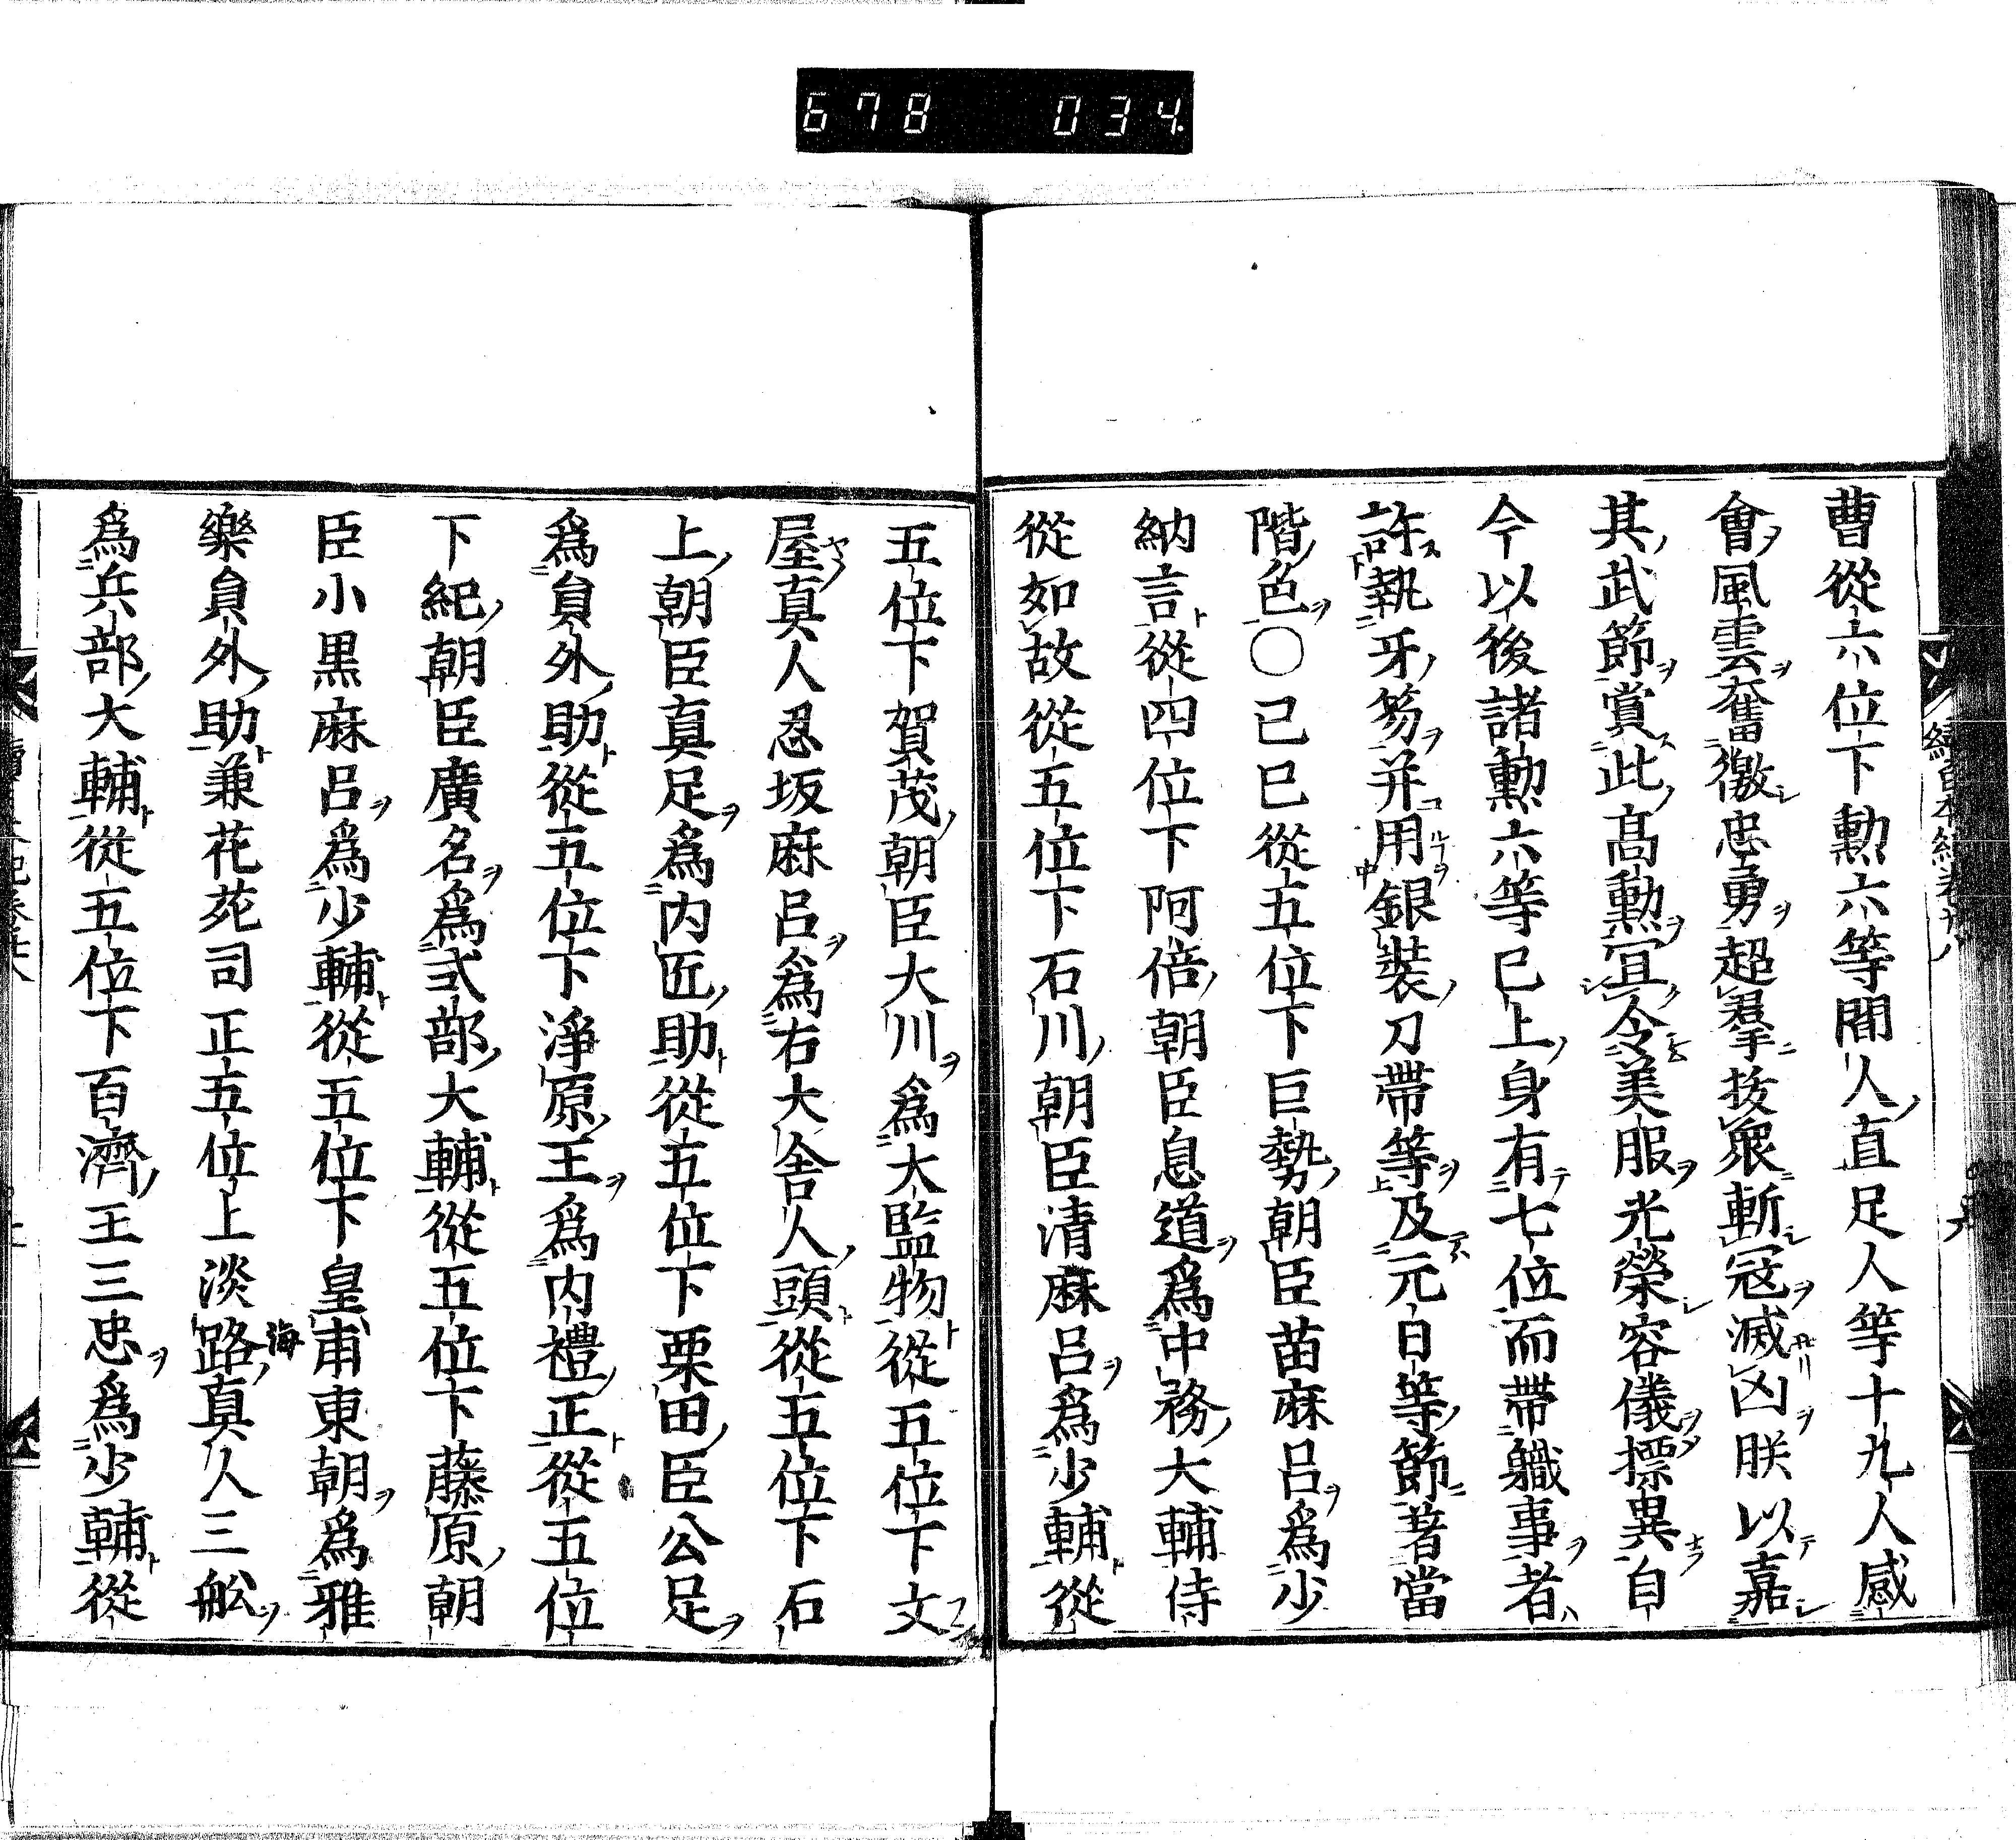 678 034.
曹從六位下勲六等間人直足人等十九人感
會風雲奮激忠勇超羣抜衆斬冦滅凶朕以嘉
其武節賞此髙勲冝令美服光榮容儀標異自
今以後諸勲六等已上身有七位而帶職事者
許執牙笏并用銀装刀帶等及元日等節著當
階色〇己巳從五位下巨勢朝臣苗麻呂爲少
納言從四位下阿倍朝臣息道爲中務大輔侍
從如故從五位下石川朝臣清麻呂爲少輔從
五位下賀茂朝臣大川爲大監物從五位下文
屋真人忍坂麻呂爲右大舎人頭從五位下石
上朝臣真足爲内匠助從五位下栗田臣公足
爲貟外助從五位下淨原王爲内禮正從五位
下紀朝臣廣名爲式部大輔從五位下藤原朝
臣小黒麻呂爲少輔從五位下皇甫東朝爲雅
樂貟外助兼花苑司正五位上淡路真人三舩
海
爲兵部大輔從五位下百濟王三忠爲少輔從